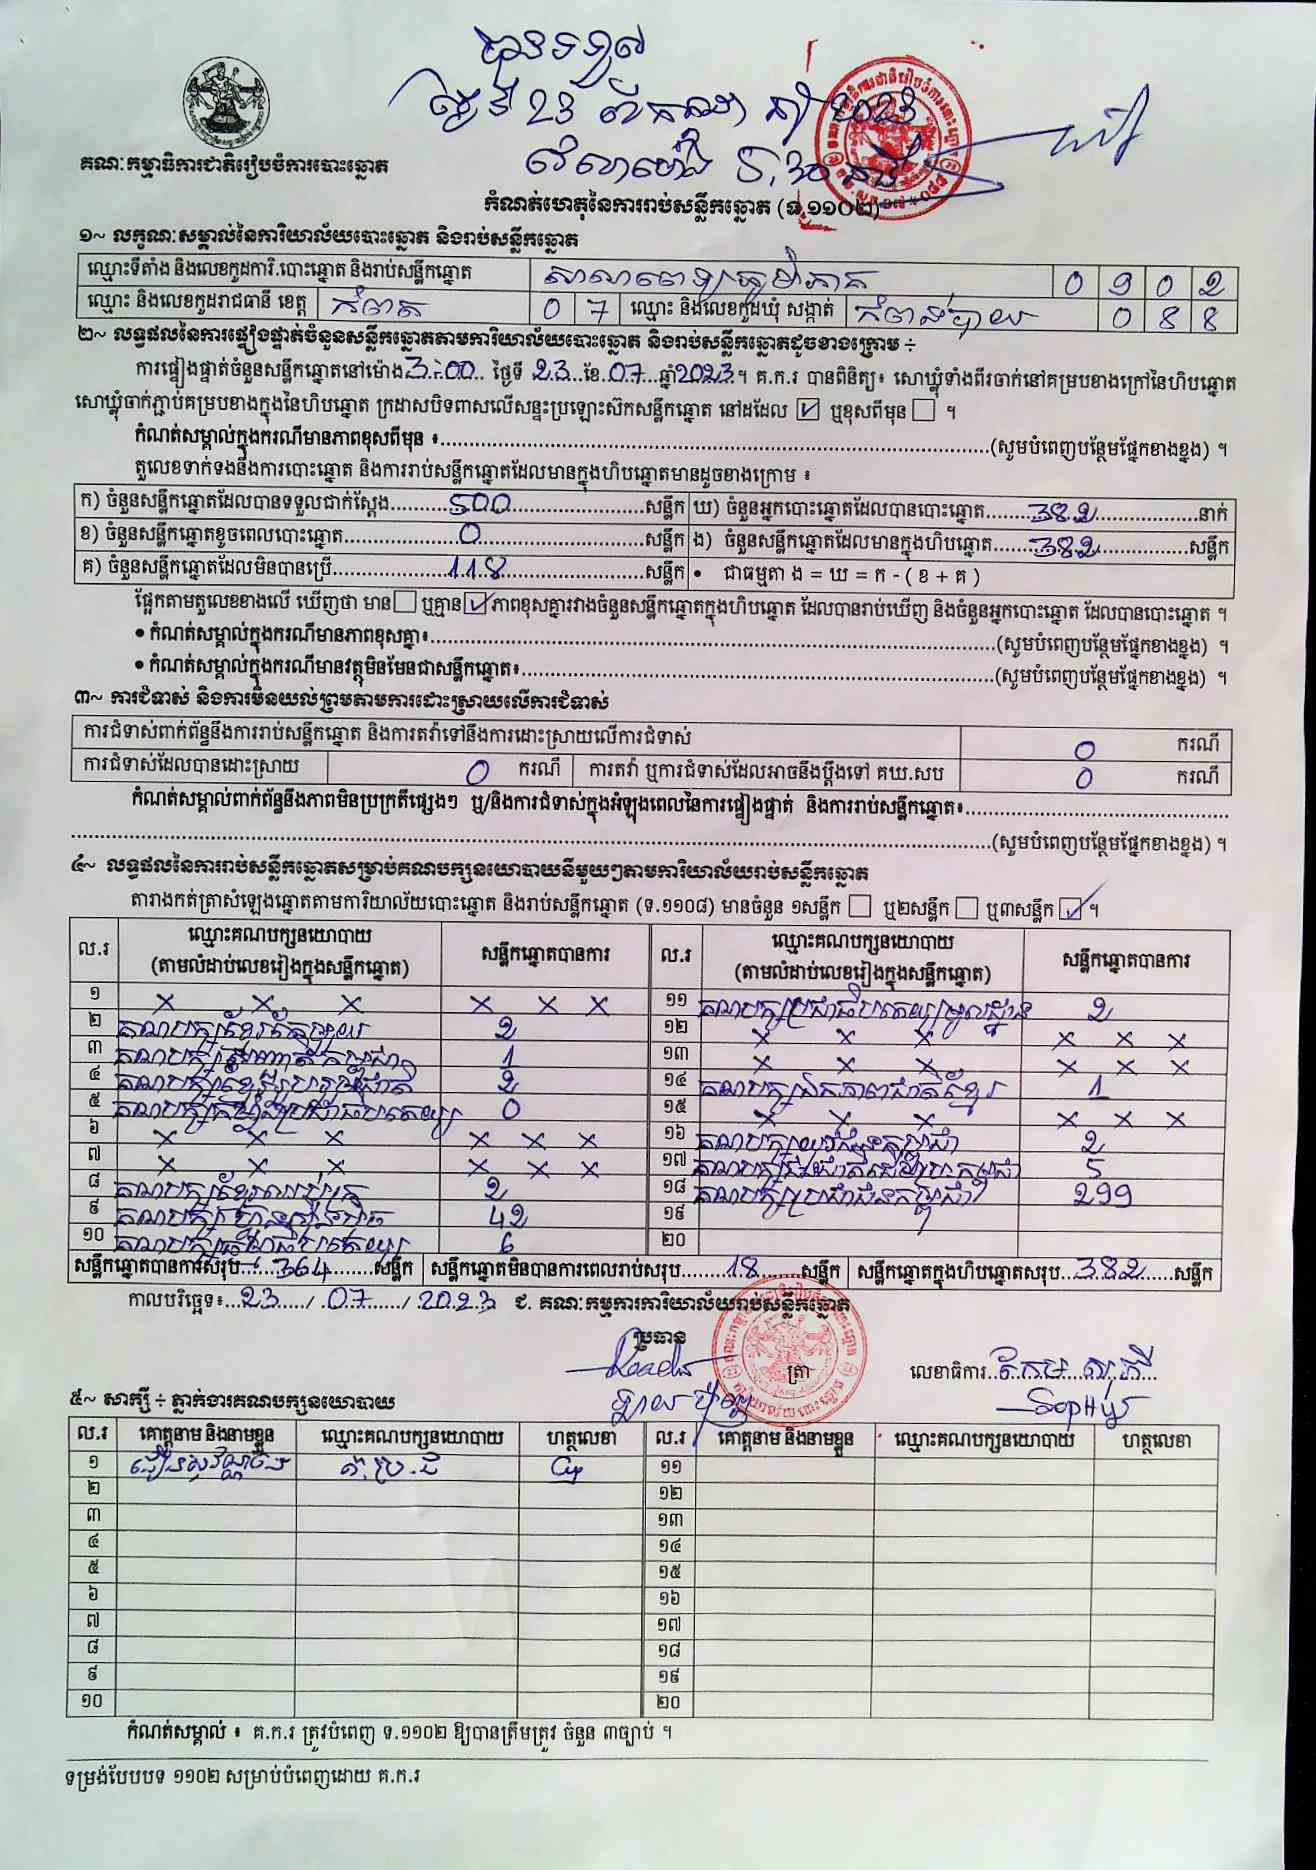 បានទទួល
ថ្ងៃទី 23 ខែ កក្កដា ឆ្នាំ 2023
វេលាម៉ោង 5,30 នាទី
គណៈកម្មាធិការជាតិរៀបចំការបោះឆ្នោត
កំណត់ហេតុនៃការរាប់សន្លឹកឆ្នោត (ទ.១១០២)
១~ លក្ខណៈសម្គាល់នៃការិយាល័យបោះឆ្នោត និងរាប់សន្លឹកឆ្នោត
ឈ្មោះទីតាំង និងលេខកូដការិ.បោះឆ្នោត និងរាប់សន្លឹកឆ្នោត សាលាពេទ្យភូមិភាគ 0 9 0 2
ឈ្មោះ និងលេខកូដរាជធានី ខេត្ត កំពត 0 7 ឈ្មោះ និងលេខកូដឃុំ សង្កាត់ កំពង់បាយ 0 8 8
២~ លទ្ធផលនៃការផ្ទៀងផ្ទាត់ចំនួនសន្លឹកឆ្នោតតាមការិយាល័យបោះឆ្នោត និងរាប់សន្លឹកឆ្នោតដូចខាងក្រោម ÷
ការផ្ទៀងផ្ទាត់ចំនួនសន្លឹកឆ្នោតនៅម៉ោង 3:00 ថ្ងៃទី 23 ខែ 07 ឆ្នាំ 2023 ។ គ.ក.រ បានពិនិត្យ៖ សោឃ្លុំទាំងពីរចាក់នៅគម្របខាងក្រៅនៃហិបឆ្នោត
សោឃ្លុំចាក់ភ្ជាប់គម្របខាងក្នុងនៃហិបឆ្នោត ក្រដាសបិទពាសលើសន្ទះប្រឡោះស៊កសន្លឹកឆ្នោត នៅដដែល ☑ ឬខុសពីមុន ☐ ។
កំណត់សម្គាល់ក្នុងករណីមានភាពខុសពីមុន ៖ (សូមបំពេញបន្ថែមផ្នែកខាងខ្នង) ។
តួលេខទាក់ទងនឹងការបោះឆ្នោត និងការរាប់សន្លឹកឆ្នោតដែលមានក្នុងហិបឆ្នោតមានដូចខាងក្រោម ៖
ក) ចំនួនសន្លឹកឆ្នោតដែលបានទទួលជាក់ស្តែង 500 សន្លឹក ឃ) ចំនួនអ្នកបោះឆ្នោតដែលបានបោះឆ្នោត 382 នាក់
ខ) ចំនួនសន្លឹកឆ្នោតខូចពេលបោះឆ្នោត 0 សន្លឹក ង) ចំនួនសន្លឹកឆ្នោតដែលមានក្នុងហិបឆ្នោត 382 សន្លឹក
គ) ចំនួនសន្លឹកឆ្នោតដែលមិនបានប្រើ 118 សន្លឹក • ជាធម្មតា ង = ឃ = ក - ( ខ + គ )
ផ្អែកតាមតួលេខខាងលើ ឃើញថា មាន ☐ ឬគ្មាន ☑ ភាពខុសគ្នារវាងចំនួនសន្លឹកឆ្នោតក្នុងហិបឆ្នោត ដែលបានរាប់ឃើញ និងចំនួនអ្នកបោះឆ្នោត ដែលបានបោះឆ្នោត ។
• កំណត់សម្គាល់ក្នុងករណីមានភាពខុសគ្នា៖ (សូមបំពេញបន្ថែមផ្នែកខាងខ្នង) ។
• កំណត់សម្គាល់ក្នុងករណីមានវត្ថុមិនមែនជាសន្លឹកឆ្នោត៖ (សូមបំពេញបន្ថែមផ្នែកខាងខ្នង) ។
៣~ ការជំទាស់ និងការមិនយល់ព្រមតាមការដោះស្រាយលើការជំទាស់
ការជំទាស់ពាក់ព័ន្ធនឹងការរាប់សន្លឹកឆ្នោត និងការតវ៉ាទៅនឹងការដោះស្រាយលើការជំទាស់ 0 ករណី
ការជំទាស់ដែលបានដោះស្រាយ 0 ករណី ការតវ៉ា ឬការជំទាស់ដែលអាចនឹងប្តឹងទៅ គឃ.សប 0 ករណី
កំណត់សម្គាល់ពាក់ព័ន្ធនឹងភាពមិនប្រក្រតីផ្សេងៗ ឬ/និងការជំទាស់ក្នុងអំឡុងពេលនៃការផ្ទៀងផ្ទាត់ និងការរាប់សន្លឹកឆ្នោត៖
(សូមបំពេញបន្ថែមផ្នែកខាងខ្នង) ។
៤~ លទ្ធផលនៃការរាប់សន្លឹកឆ្នោតសម្រាប់គណបក្សនយោបាយនីមួយៗតាមការិយាល័យរាប់សន្លឹកឆ្នោត
តារាងកត់ត្រាសំឡេងឆ្នោតតាមការិយាល័យបោះឆ្នោត និងរាប់សន្លឹកឆ្នោត (ទ.១១០៨) មានចំនួន ១សន្លឹក ☐ ឬ២សន្លឹក ☐ ឬ៣សន្លឹក ☑ ។
ល.រ ឈ្មោះគណបក្សនយោបាយ (តាមលំដាប់លេខរៀងក្នុងសន្លឹកឆ្នោត) សន្លឹកឆ្នោតបានការ ល.រ ឈ្មោះគណបក្សនយោបាយ (តាមលំដាប់លេខរៀងក្នុងសន្លឹកឆ្នោត) សន្លឹកឆ្នោតបានការ
១ X X X X X X ១១ គណបក្សប្រជាធិបតេយ្យមូលដ្ឋាន 2
២ គណបក្ស 2 ១២ X X X X X X
៣ គណបក្ស 1 ១៣ X X X X X X
៤ គណបក្ស 2 ១៤ គណបក្សឯកភាពជាតិខ្មែរ 1
៥ គណបក្ស 0 ១៥ X X X X X X
៦ X X X X X X ១៦ គណបក្សយុវជនកម្ពុជា 2
៧ X X X X X X ១៧ គណបក្ស 5
៨ គណបក្ស 2 ១៨ គណបក្សប្រជាជនកម្ពុជា 299
៩ គណបក្សហ្វ៊ុនស៊ិនប៉ិច 42 ១៩
១០ គណបក្ស 6 ២០
សន្លឹកឆ្នោតបានការសរុប 364 សន្លឹក សន្លឹកឆ្នោតមិនបានការពេលរាប់សរុប 18 សន្លឹក សន្លឹកឆ្នោតក្នុងហិបឆ្នោតសរុប 382 សន្លឹក
កាលបរិច្ឆេទ៖ 23 / 07 / 2023 ជ. គណៈកម្មការការិយាល័យរាប់សន្លឹកឆ្នោត
ប្រធាន
ត្រា លេខាធិការ
៥~ សាក្សី ÷ ភ្នាក់ងារគណបក្សនយោបាយ
ល.រ គោត្តនាម និងនាមខ្លួន ឈ្មោះគណបក្សនយោបាយ ហត្ថលេខា ល.រ គោត្តនាម និងនាមខ្លួន ឈ្មោះគណបក្សនយោបាយ ហត្ថលេខា
១ គ.ប្រ.ជ ១១
២ ១២
៣ ១៣
៤ ១៤
៥ ១៥
៦ ១៦
៧ ១៧
៨ ១៨
៩ ១៩
១០ ២០
កំណត់សម្គាល់ ៖ គ.ក.រ ត្រូវបំពេញ ទ.១១០២ ឱ្យបានត្រឹមត្រូវ ចំនួន ៣ច្បាប់ ។
ទម្រង់បែបបទ ១១០២ សម្រាប់បំពេញដោយ គ.ក.រ